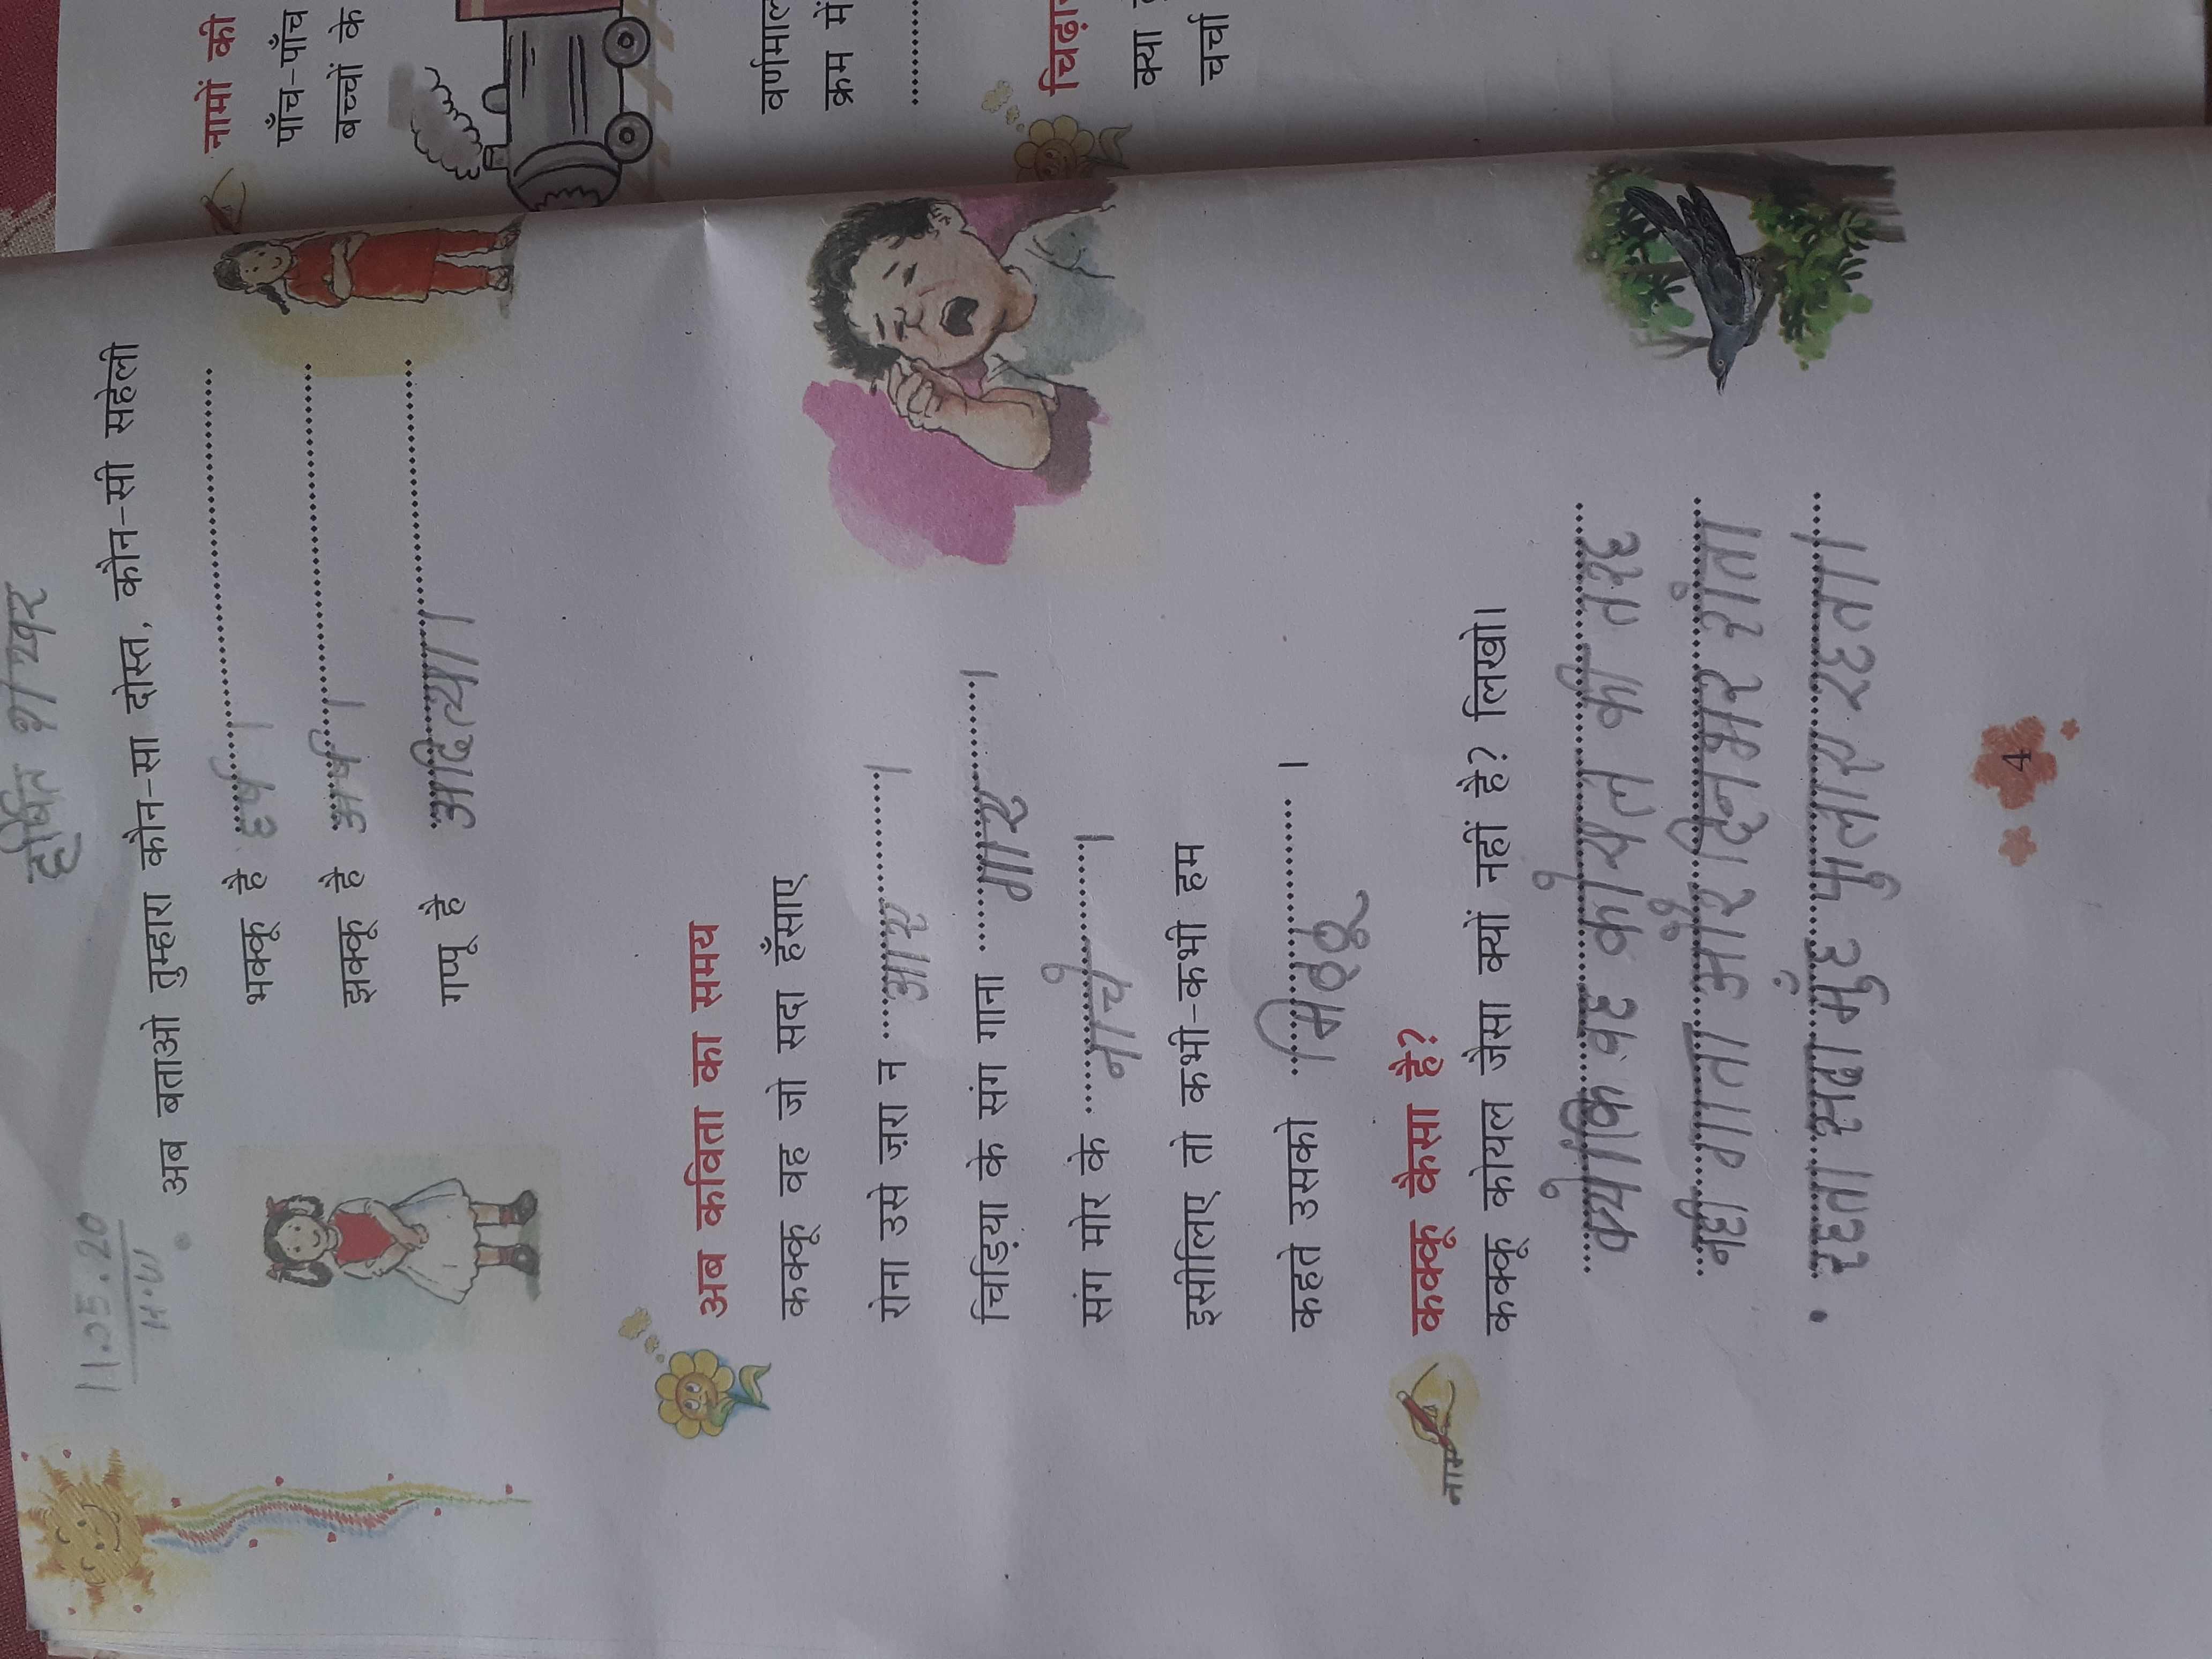 हर्षित शेखर
11.05.20
H.W
अब बताओ तुम्हारा कौन-सा दोस्त, कौन-सी सहेली
भक्कू है हर्ष ।
झक्कू है अर्ष ।
गप्पू है अदित्या ।
अब कविता का समय
कक्कू वह जो सदा हँसाए
रोना उसे ज़रा न आए ।
चिड़िया के संग गाना गाए ।
संग मोर के नाचे ।
इसीलिए तो कभी-कभी हम
कहते उसको मिठ्ठू ।
नाम
कक्कू कैसा है?
कक्कू कोयल जैसा क्यों नहीं है? लिखो।
क्योंकि वह कोयल की तरह
नही गाता और दिनभर रोता
रहता सदा मुँह फुलाए रहता।
4
नामों की
पाँच-पाँच
बच्चों के
क्रम में
क्या
चर्चा